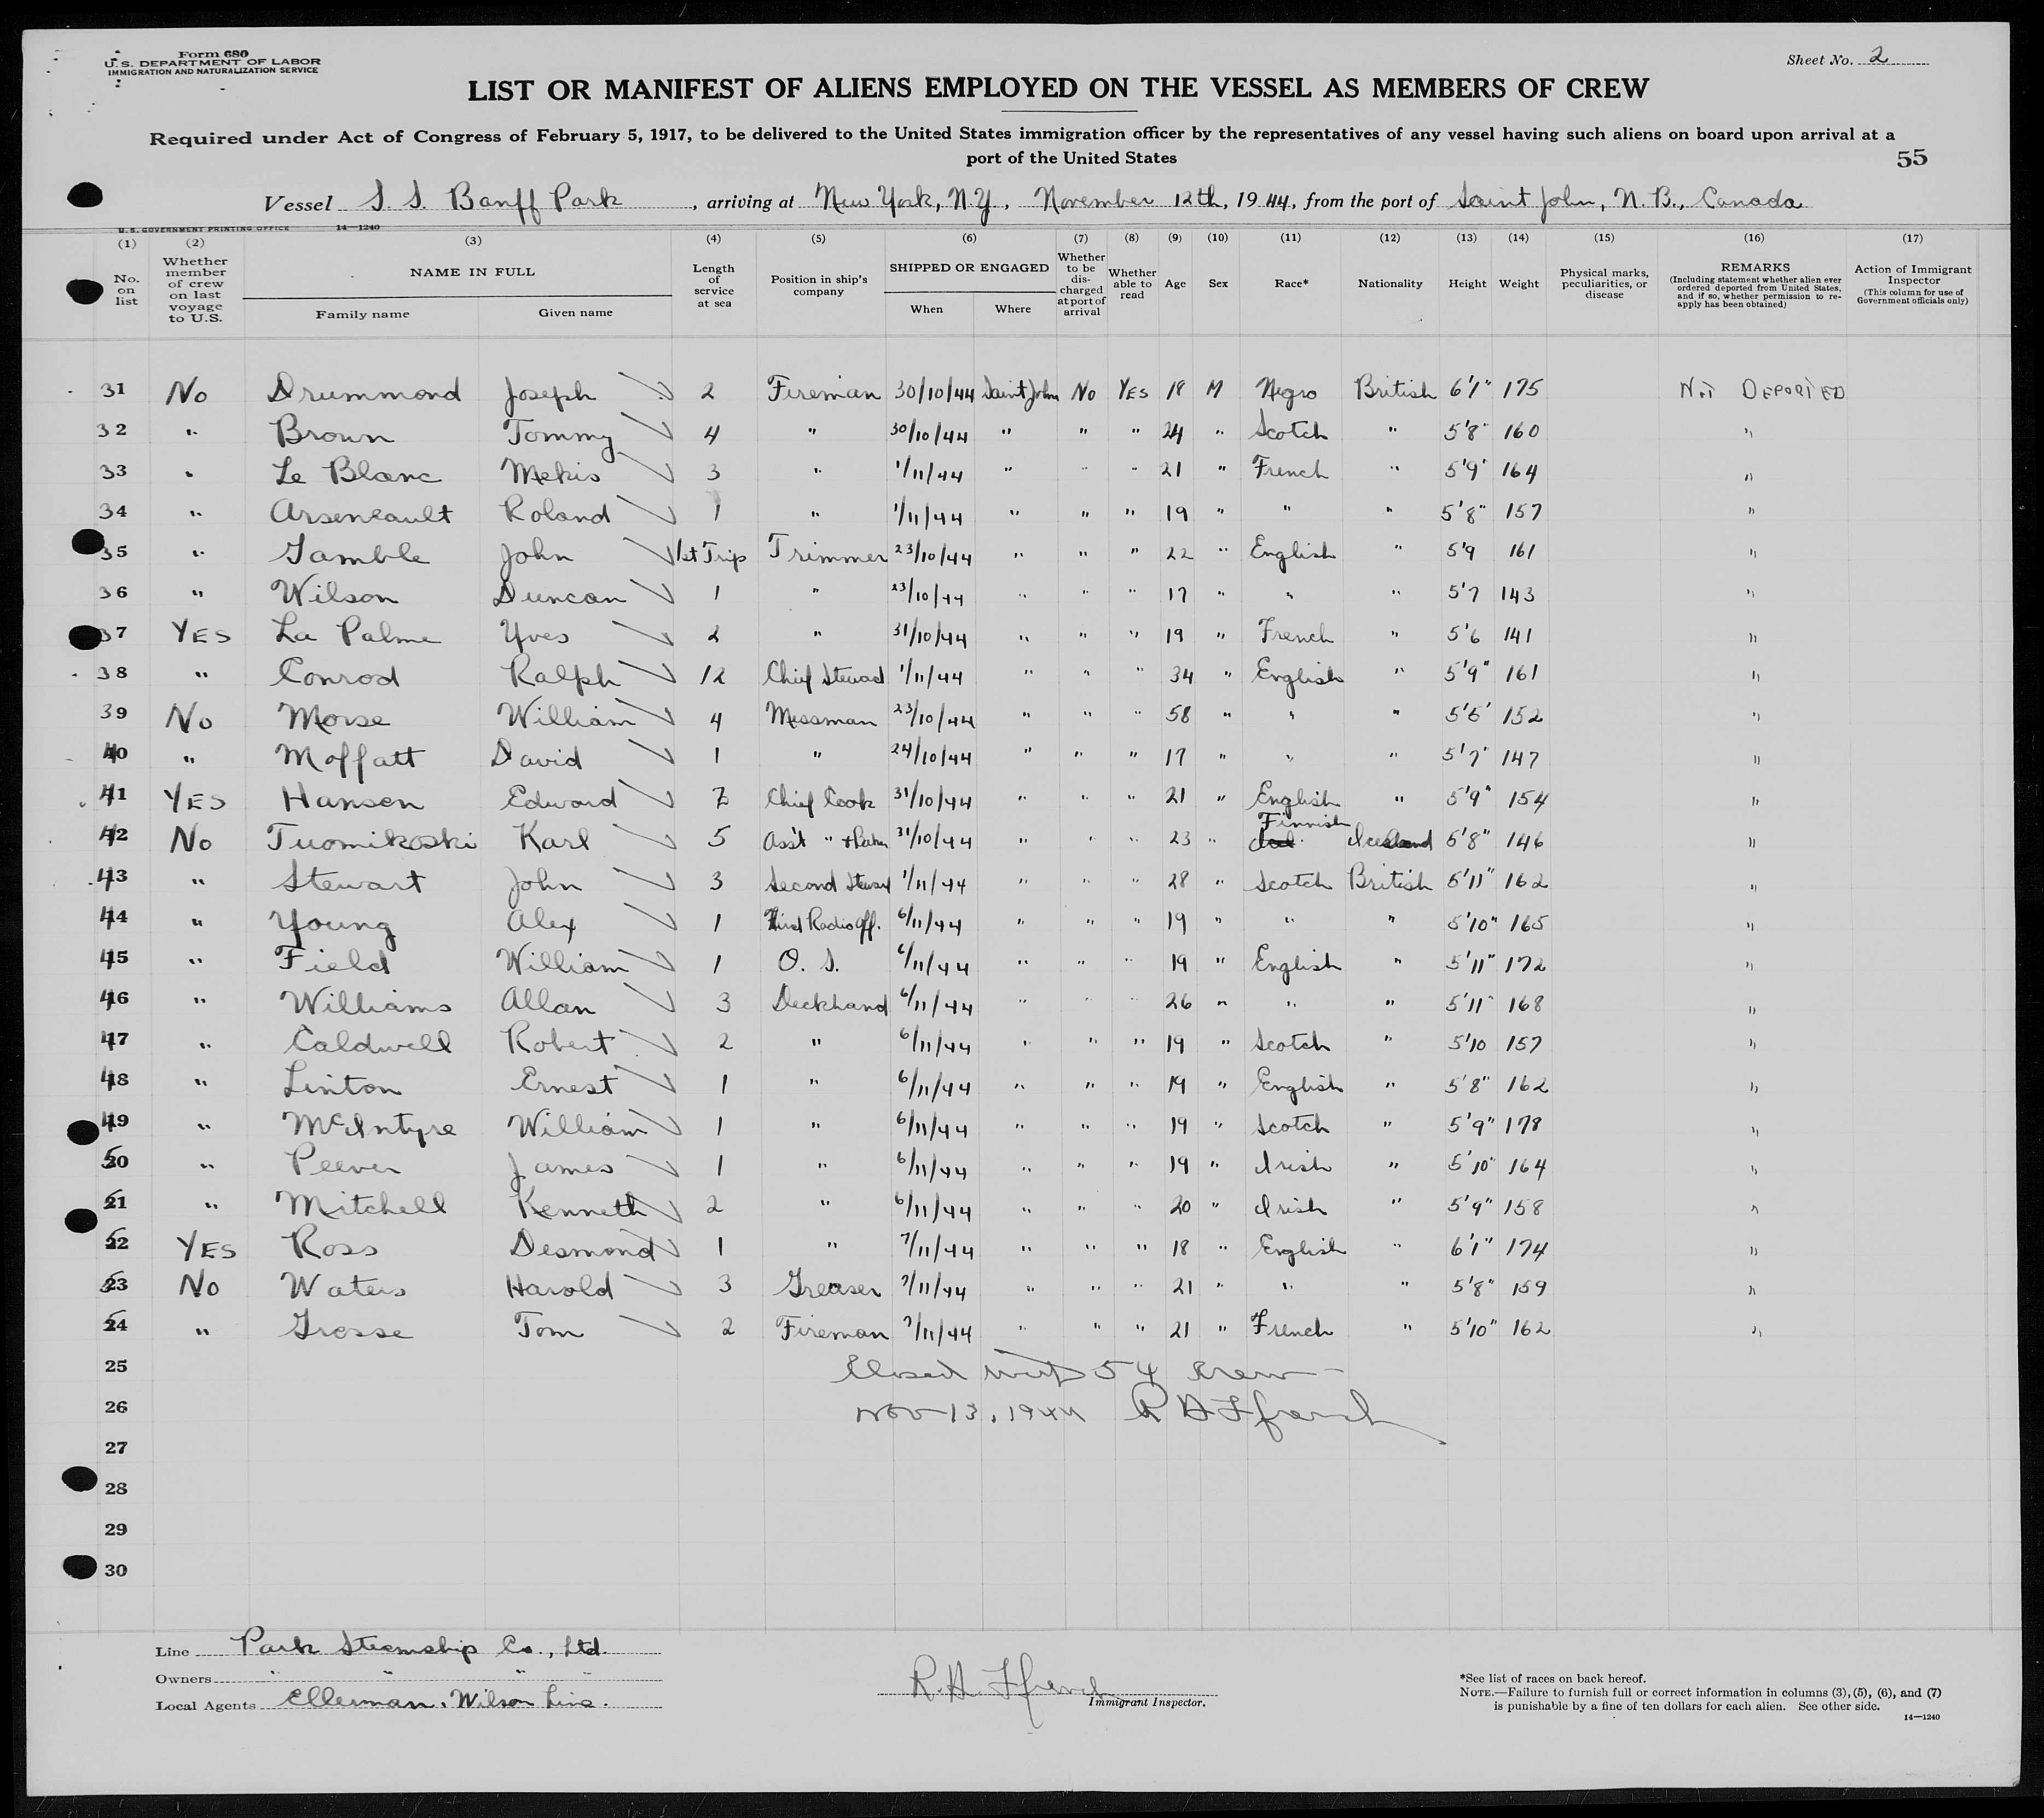 Form 680
U. S. DEPARTMENT OF LABOR
IMMIGRATION AND NATURALIZATION SERVICE
Sheet No. 2
LIST OR MANIFEST OF ALIENS EMPLOYED ON THE VESSEL AS MEMBERS OF CREW
Required under Act of Congress of February 5, 1917, to be delivered to the United States immigration officer by the representatives of any vessel having such aliens on board upon arrival at a
port of the United States
55
Vessel S. S. Banff Park, arriving at New York, N.Y., November 12th, 1944, from the port of Saint John, N. B., Canada
U. S. GOVERNMENT PRINTING OFFICE 14—1240
(1) (2) (3) (4) (5) (6) (7) (8) (9) (10) (11) (12) (13) (14) (15) (16) (17)
No. on list
Whether member of crew on last voyage to U.S.
NAME IN FULL
Family name Given name
Length of service at sea
Position in ship's company
SHIPPED OR ENGAGED
When Where
Whether to be discharged at port of arrival
Whether able to read
Age
Sex
Race*
Nationality
Height
Weight
Physical marks, peculiarities, or disease
REMARKS
(Including statement whether alien ever ordered deported from United States, and if so, whether permission to re-apply has been obtained)
Action of Immigrant Inspector
(This column for use of Government officials only)
31 No Drummond Joseph 2 Fireman 30/10/44 Saint John No YES 18 M Negro British 6'1" 175 NOT DEPORTED
32 " Brown Tommy 4 " 30/10/44 " " " 24 " Scotch " 5'8" 160 "
33 " Le Blanc Mekis 3 " 1/11/44 " " " 21 " French " 5'9" 164 "
34 " Arseneault Roland 1 " 1/11/44 " " " 19 " " " 5'8" 157 "
35 " Gamble John 1st Trip Trimmer 23/10/44 " " " 22 " English " 5'9 161 "
36 " Wilson Duncan 1 " 23/10/44 " " " 17 " " " 5'7 143 "
37 YES La Palme Yves 2 " 31/10/44 " " " 19 " French " 5'6 141 "
38 " Conrod Ralph 12 Chief Steward 1/11/44 " " " 34 " English " 5'9" 161 "
39 No Morse William 4 Messman 23/10/44 " " " 58 " " " 152 "
40 " Moffatt David 1 " 24/10/44 " " " 17 " " " 5'7" 147 "
41 YES Hansen Edward Chief Cook 31/10/44 " " " 21 " English " 5'9" 154 "
42 No Tuomikoski Karl 5 Ass't " + Baker 31/10/44 " " " 23 " Finnish Iceland 5'8" 146 "
43 " Stewart John 3 Second Steward 1/11/44 " " " 28 " Scotch British 5'11" 162 "
44 " Young Alex 1 Third Radio Off. 6/11/44 " " " 19 " " " 5'10" 165 "
45 " Field William 1 O. S. 6/11/44 " " " 19 " English " 5'11" 172 "
46 " Williams Allan 3 Deckhand 6/11/44 " " " 26 " " " 5'11" 168 "
47 " Caldwell Robert 2 " 6/11/44 " " " 19 " Scotch " 5'10 157 "
48 " Linton Ernest 1 " 6/11/44 " " " 19 " English " 5'8" 162 "
49 " McIntyre William 1 " 6/11/44 " " " 19 " Scotch " 5'9" 178 "
50 " Peever James 1 " 6/11/44 " " " 19 " Irish " 5'10" 164 "
51 " Mitchell Kenneth 2 " 6/11/44 " " " 20 " Irish " 5'9" 158 "
52 YES Ross Desmond 1 " 7/11/44 " " " 18 " English " 6'1" 174 "
53 No Waters Harold 3 Greaser 7/11/44 " " " 21 " " " 5'8" 159 "
54 " Grosse Tom 2 Fireman 7/11/44 " " " 21 " French " 5'10" 162 "
25 Closed with 54 crew
26 Nov 13, 1944 R H Ffrench
27
28
29
30
Line Park Steamship Co., Ltd.
Owners " " " "
Local Agents Ellerman, Wilson Line.
R. H. Ffrench
Immigrant Inspector.
*See list of races on back hereof.
NOTE.—Failure to furnish full or correct information in columns (3), (5), (6), and (7)
is punishable by a fine of ten dollars for each alien. See other side.
14—1240